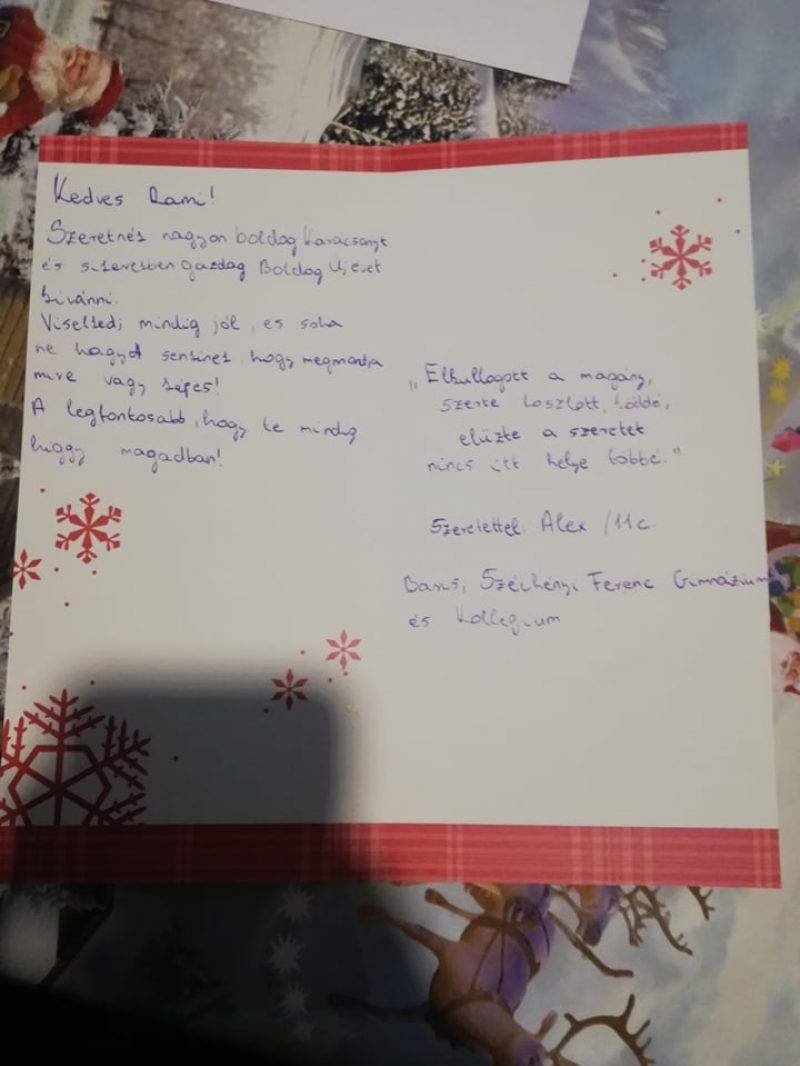 Kedves Rami!
Szeretnék nagyon boldog Karácsonyt
és sikerekben gazdag Boldog Újévet
kívánni.
Viselkedj mindig jól, és soha
ne hagyd senkinek, hogy megmondja
mire vagy képes!
A legfontosabb, hogy te mindig
higgy magadban!
„Elkullogott a magány,
szerte foszlott, köddé,
elűzte a szeretet
nincs itt helye többé."
Szeretettel: Alex /11.c
Barcs, Széchényi Ferenc Gimnázium
és Kollégium